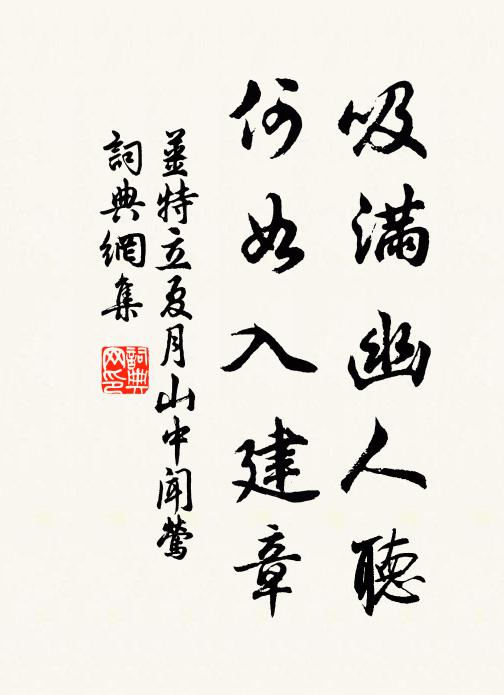 吸满幽人聽
何如入建章
姜特立夏月山中闻莺
詞典網集
詞典
网印